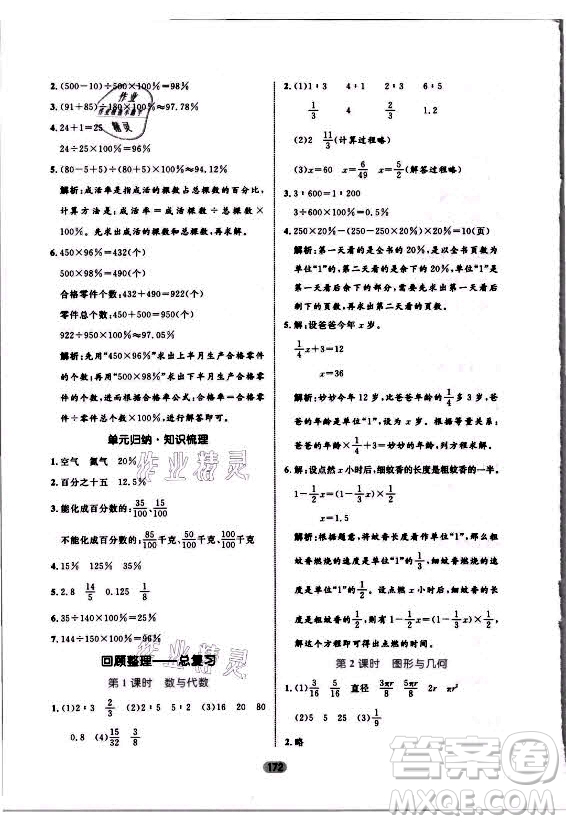 2. (500-10)÷500×100%=98%
3. (91+85)÷180×100%≈97.78%
4. 24+1=25
24÷25×100%=96%
5. (80-5+5)÷(80+5)×100%≈94.12%
解析:成活率是指成活的棵数占总棵数的百分比,
计算方法是:成活率=成活的棵数÷总棵数×100%。
先求出成活的棵数、总棵数,再代入公式即可求解。
6. 450×96%=432(个)
500×98%=490(个)
合格零件个数:432+490=922(个)
零件总个数:450+500=950(个)
922÷950×100%≈97.05%
解析:先用“450×96%”求出上半月生产合格零件
的个数;再用“500×98%”求出下半月生产合格零件
的个数,进而根据合格率=合格零件个数÷零件总个
数×100%,进行解答即可。
单元归纳·知识梳理
1. 空气 氮气 20%
2. 百分之十五
3. 能化成百分数的:35/100、15/100
不能化成百分数的:85/100千克、50/100千克、100/100千克
4. 15% 125%
5. 2.8 14/5 0.125 1/8
6. 35÷140×100%=25%
7. 144÷150×100%=96%
回顾整理——总复习
第1课时 数与代数
1. (1)2∶3 2/3 (2)2∶3 (3)12 16 20 80
0.8 (4)15/32 8/33
2. (1)1∶3 4∶1 4∶1 6∶5
1/3 4 4 1.2
(2)2 11/30(计算过程略)
(3)x=60 x=6/49 x=5/2(解答过程略)
3. 3∶600=1∶200
3÷600×100%=0.5%
4. 250×20%-(250-250×20%)×20%=10(页)
解析:第一天看的是全书的20%,以全书页数为单
位“1”的,第二天看的是余下的20%,单位“1”是第一天看后
余下的部分,需要先求出单位“1”即第一天看后
剩下的页数,再求出第二天看的页数。
5. 解:设爸爸今年x岁。
1/4x+3=12
x=36
解析:妙妙今年12岁,比爸爸年龄的1/4多3岁,把
爸爸的年龄看作单位“1”。根据等量关系:
爸爸的年龄×1/4+3=妙妙的年龄,列方程解答。
6. 解:设点燃x小时后,细蚊香的长度是粗蚊香的一半。
x=1.5
解析:根据题意,将蚊香长度看作单位“1”,那么粗
解决这个问题了。
第2课时 图形与几何
1. (1)3/16 5/16 直径 3πr/8 5πr/8 2r πr²
(2)5 5 25 (3)1/9
2. 略
172
作业精灵
作业精灵
答案圈
MXQE.COM